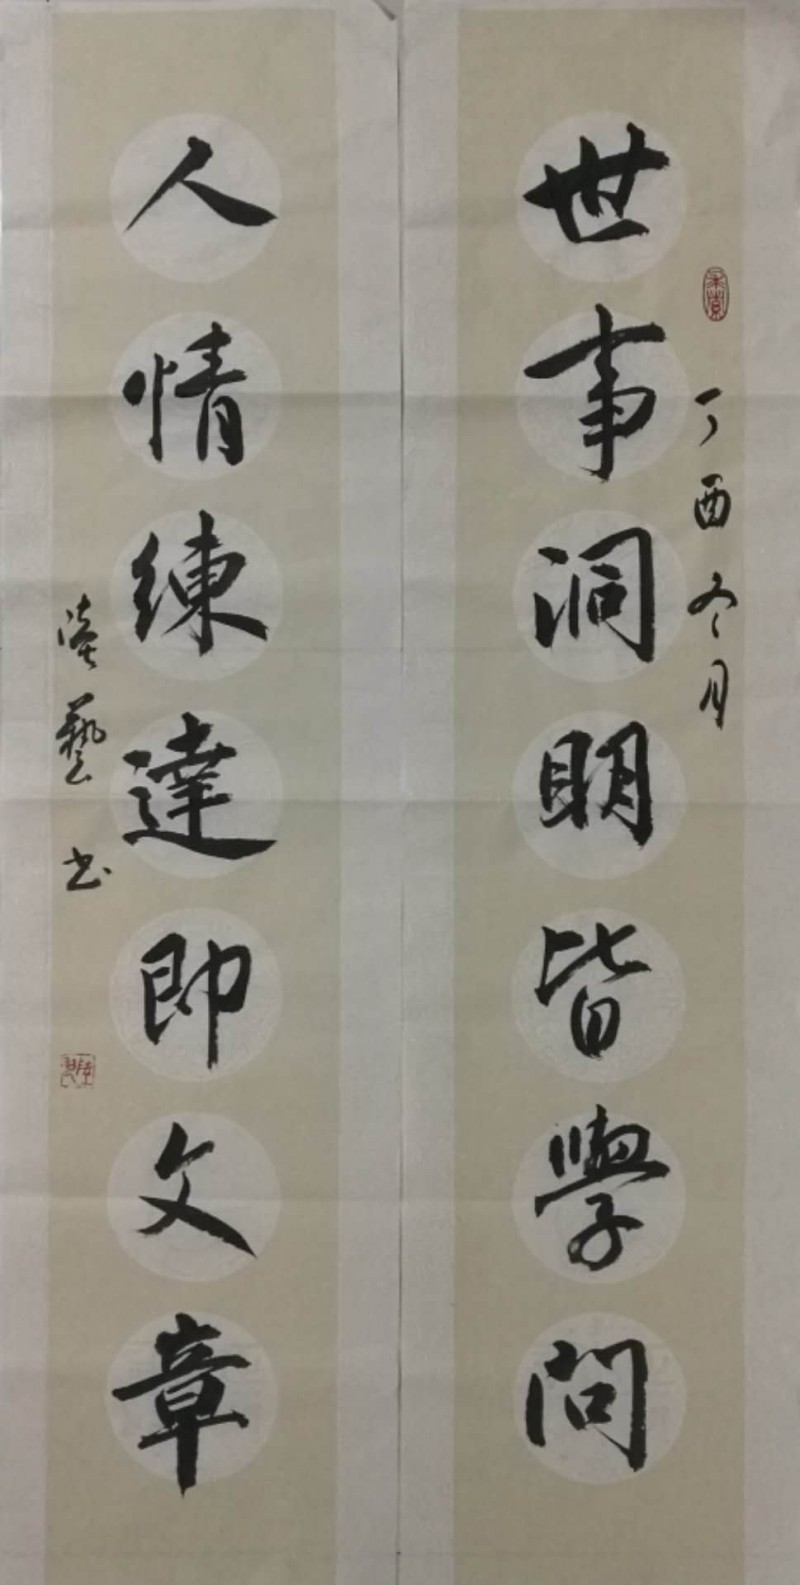 丁酉冬月
世事洞明皆學問
人情練達即文章
藝书